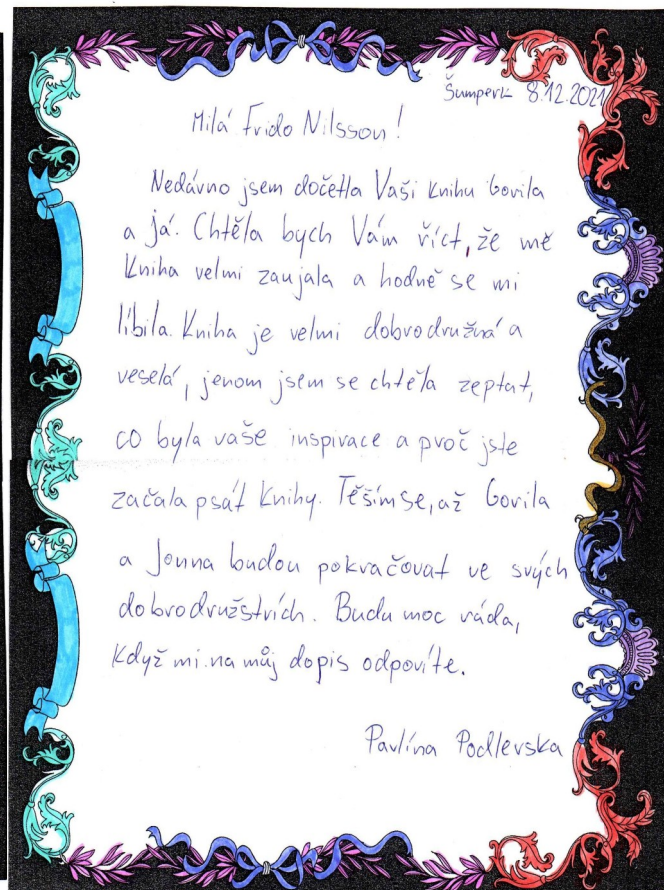 Šumperk 8.12.2021
Milá Frido Nilsson!
Nedávno jsem dočetla Vaši knihu Gorila
a já. Chtěla bych Vám říct, že mě
Kniha velmi zaujala a hodně se mi
líbila. Kniha je velmi dobrodružná a
veselá, jenom jsem se chtěla zeptat,
co byla vaše inspirace a proč jste
začala psát knihy. Těším se, až Gorila
a Jonna budou pokračovat ve svých
dobrodružstvích. Budu moc ráda,
Když mi na můj dopis odpovíte.
Pavlína Podlevska